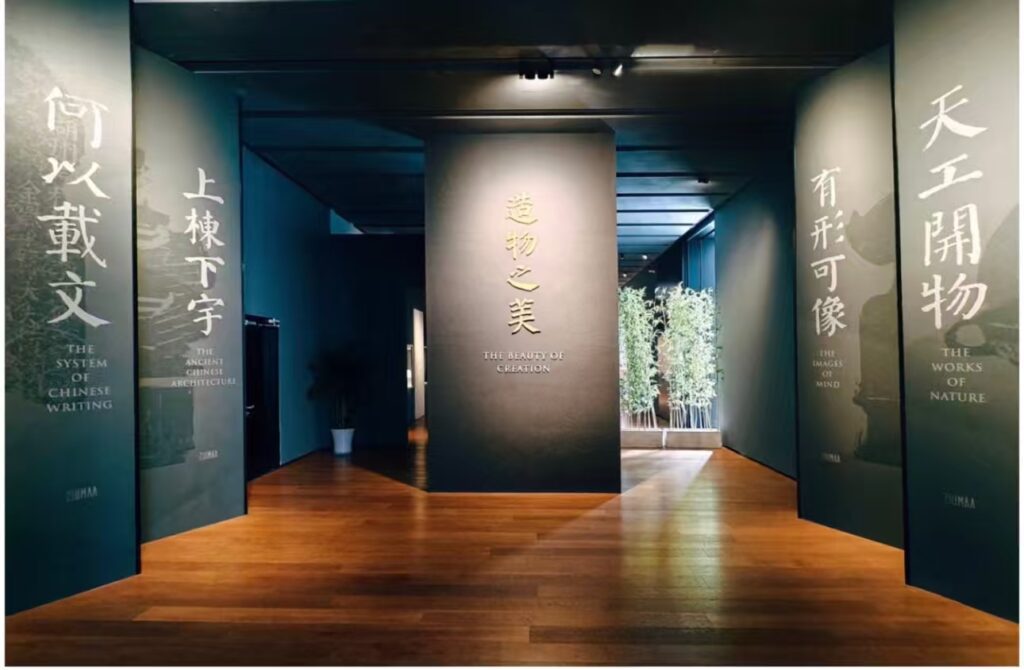 何以載文
THE
SYSTEM
OF
CHINESE
WRITING
ZJUMAA
上棟下宇
THE
ANCIENT
CHINESE
ARCHITECTURE
ZJUMAA
造物之美
THE BEAUTY OF
CREATION
有形可像
THE
IMAGES
OF
MIND
ZJUMAA
天工開物
THE
WORKS
OF
NATURE
ZJUMAA